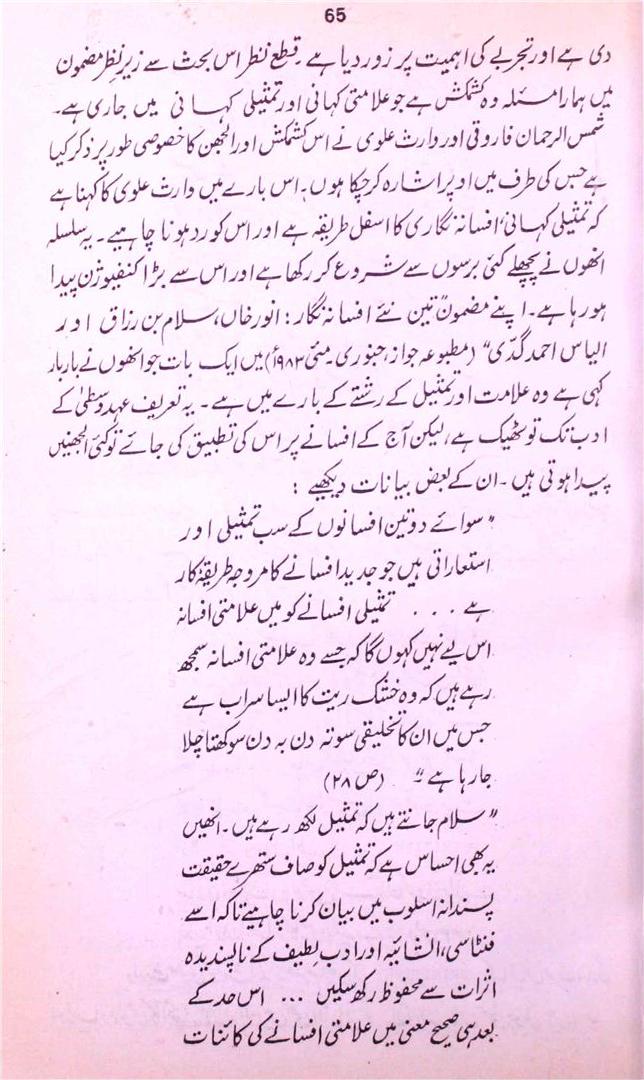 65
دی ہے اور تجربے کی اہمیت پر زور دیا ہے۔ قطع نظر اس بحث سے زیر نظر مضمون
میں ہمارا مسئلہ وہ کشمکش ہے جو علامتی کہانی اور تمثیلی کہانی میں جاری ہے۔
شمس الرحمان فاروقی اور وارث علوی نے اس کشمکش اور الجھن کا خصوصی طور پر ذکر کیا
ہے جس کی طرف میں اوپر اشارہ کر چکا ہوں۔ اس بارے میں وارث علوی کا کہنا ہے
کہ تمثیلی کہانی، افسانہ نگاری کا اسفل طریقہ ہے اور اس کو رد ہونا چاہیے۔ یہ سلسلہ
انھوں نے پچھلے کئی برسوں سے شروع کر رکھا ہے اور اس سے بڑا کنفیوژن پیدا
ہو رہا ہے۔ اپنے مضمون "تین نئے افسانہ نگار: انور خاں، سلام بن رزاق اور
الیاس احمد گدّی" (مطبوعہ جواز، جنوری۔ مئی ۱۹۸۳ء) میں ایک بات جو انھوں نے بار بار
کہی ہے وہ علامت اور تمثیل کے رشتے کے بارے میں ہے۔ یہ تعریف عہد وسطیٰ کے
ادب تک تو ٹھیک ہے، لیکن آج کے افسانے پر اس کی تطبیق کی جائے تو کئی الجھنیں
پیدا ہوتی ہیں۔ ان کے بعض بیانات دیکھیے :
"سوائے دو تین افسانوں کے سب تمثیلی اور
استعاراتی ہیں جو جدید افسانے کا مروجہ طریقۂ کار
ہے . . . تمثیلی افسانے کو میں علامتی افسانہ
اس لیے نہیں کہوں گا کہ جسے وہ علامتی افسانہ سمجھ
رہے ہیں کہ وہ خشک ریت کا ایسا سراب ہے
جس میں ان کا تخلیقی سوتہ دن بہ دن سوکھتا چلا
جا رہا ہے۔" (ص ۲۸)
"سلام جانتے ہیں کہ تمثیل لکھ رہے ہیں۔ انھیں
یہ بھی احساس ہے کہ تمثیل کو صاف ستھرے حقیقت
پسندانہ اسلوب میں بیان کرنا چاہیے تاکہ اسے
فنتاسی، انشائیہ اور ادب لطیف کے ناپسندیدہ
اثرات سے محفوظ رکھ سکیں ... اس حد کے
بعد ہی صحیح معنی میں علامتی افسانے کی کائنات